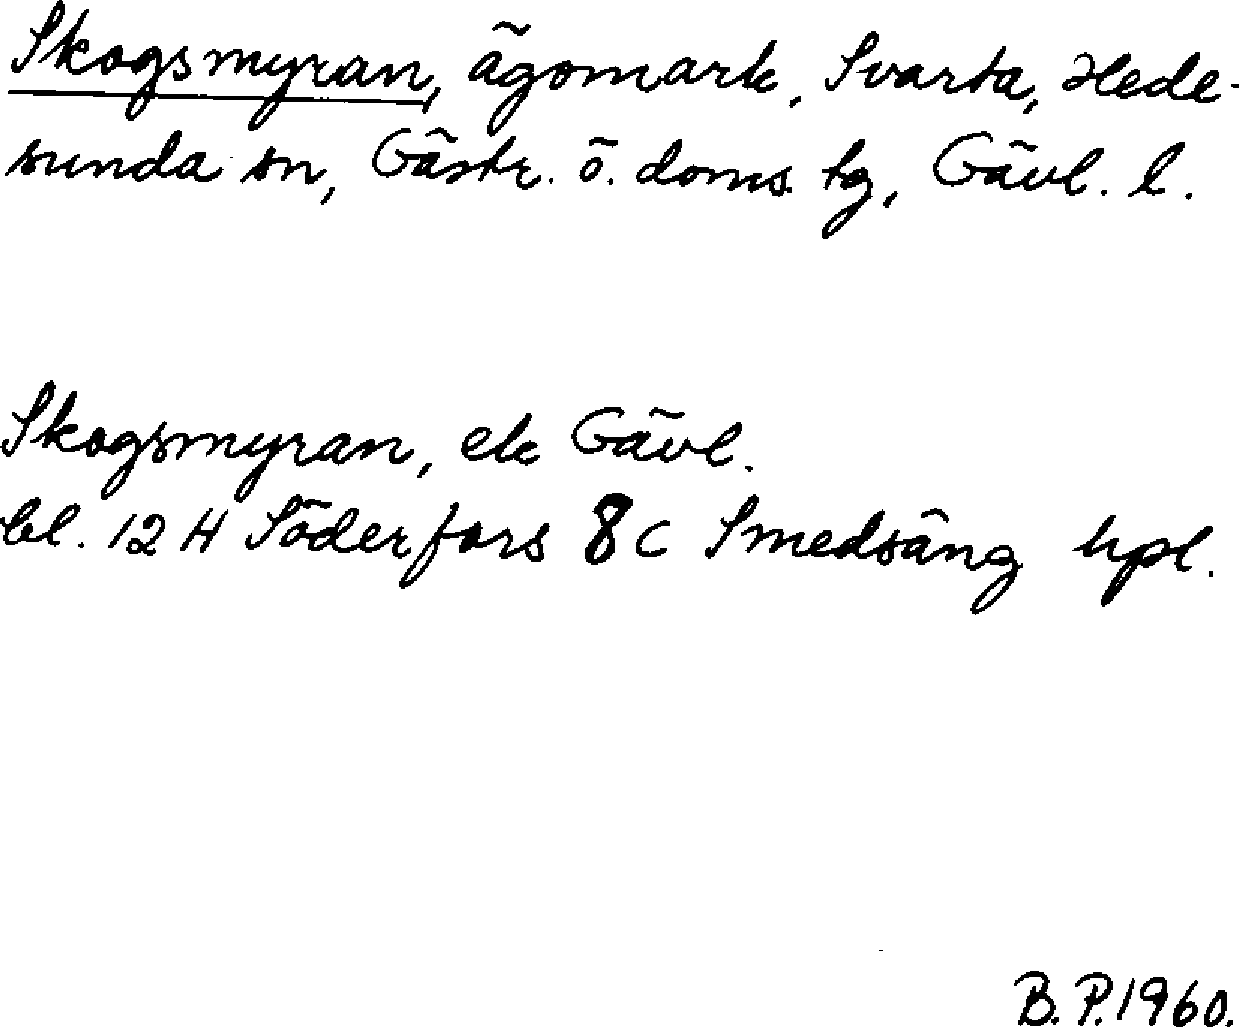 Skogsmyran, ägomark, Svarta, Hede-
sunda sn, Gästr. ö. doms. tg, Gävl. l.
Skogsmyran, ek Gävl.
bl. 12 H Söderfors 8 c Smedsäng hpl.
B. P. 1960.